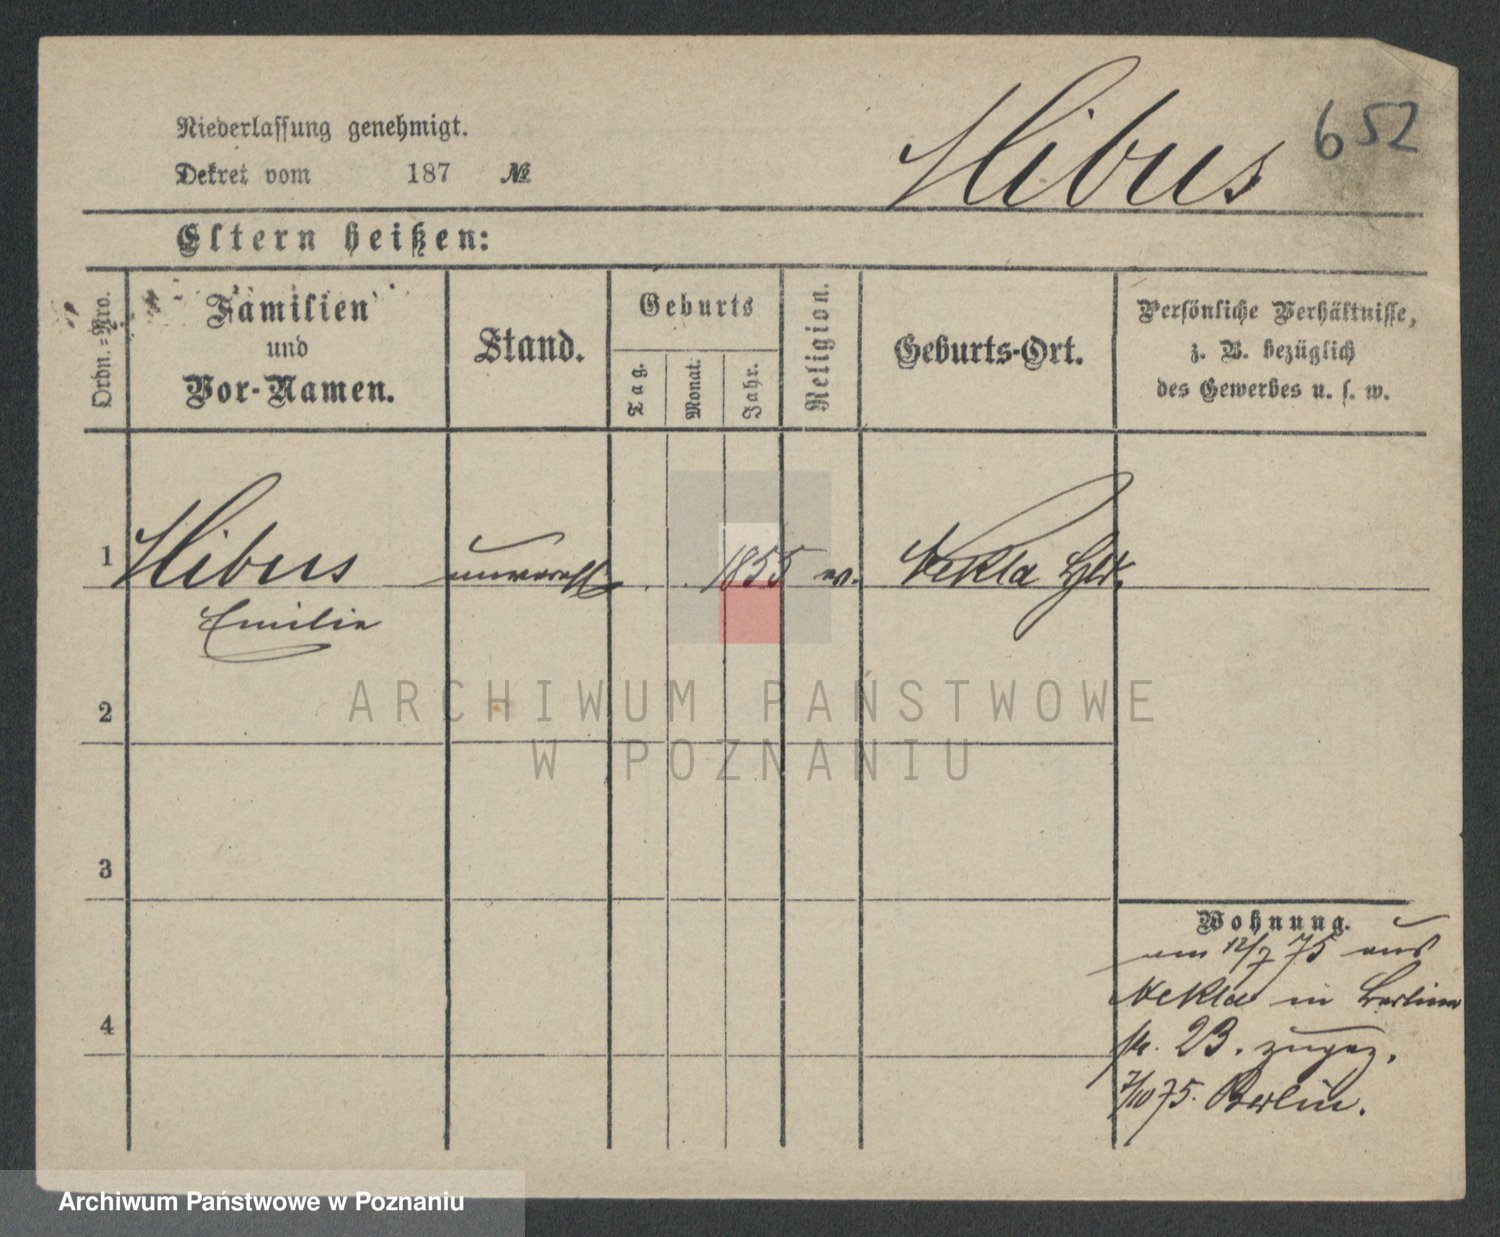 Niederlassung genehmigt.
Dekret vom 187 №
Hibus
652
Eltern heißen:
Ordn.-Nro.
Familien
und
Vor-Namen.
Stand.
Geburts
Tag.
Monat.
Jahr.
Religion.
Geburts-Ort.
Persönliche Verhältnisse,
z. B. bezüglich
des Gewerbes u. s. w.
1 Hibus unvereh 1855 ev. Nekla Hld.
Emilie
2
3
4
Wohnung.
am 12/7 75 aus
Nekla in Berliner
str. 23. zugez.
7/10 75. Berlin.
ARCHIWUM PAŃSTWOWE
W POZNANIU
Archiwum Państwowe w Poznaniu